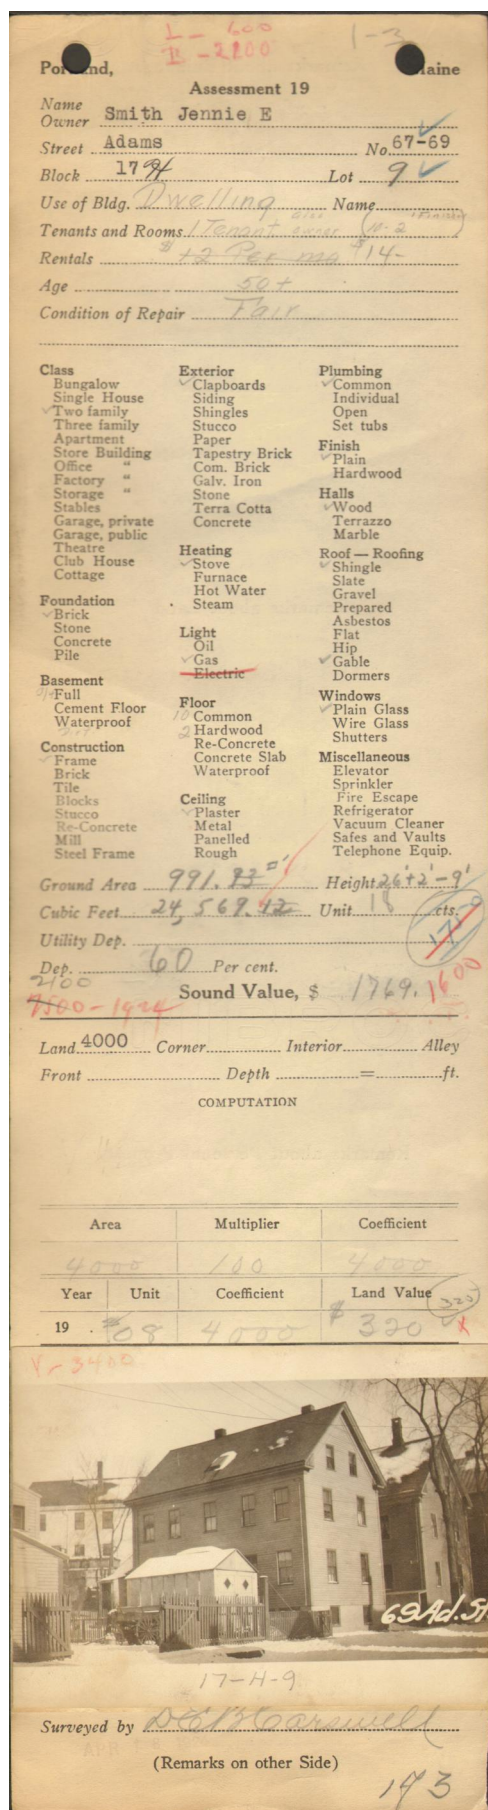 L - 600
B - 2200
1-3
Portland, Maine
Assessment 19
Name
Owner Smith Jennie E
Street Adams No. 67-69
Block 17 H Lot 9
Use of Bldg. Dwelling Name
Tenants and Rooms 1 Tenant also owner
Rentals $12 Per mo $14-
Age 50+
Condition of Repair Fair
Class
Bungalow
Single House
Two family
Three family
Apartment
Store Building
Office "
Factory "
Storage "
Stables
Garage, private
Garage, public
Theatre
Club House
Cottage
Foundation
Brick
Stone
Concrete
Pile
Basement
Full
Cement Floor
Waterproof
Construction
Frame
Brick
Tile
Blocks
Stucco
Re-Concrete
Mill
Steel Frame
Exterior
Clapboards
Siding
Shingles
Stucco
Paper
Tapestry Brick
Com. Brick
Galv. Iron
Stone
Terra Cotta
Concrete
Heating
Stove
Furnace
Hot Water
Steam
Light
Oil
Gas
Electric
Floor
10 Common
2 Hardwood
Re-Concrete
Concrete Slab
Waterproof
Ceiling
Plaster
Metal
Panelled
Rough
Plumbing
Common
Individual
Open
Set tubs
Finish
Plain
Hardwood
Halls
Wood
Terrazzo
Marble
Roof — Roofing
Shingle
Slate
Gravel
Prepared
Asbestos
Flat
Hip
Gable
Dormers
Windows
Plain Glass
Wire Glass
Shutters
Miscellaneous
Elevator
Sprinkler
Fire Escape
Refrigerator
Vacuum Cleaner
Safes and Vaults
Telephone Equip.
Ground Area 991.73 Height 26'+2'-9'
Cubic Feet 24,569.12 Unit 18 cts.
Utility Dep.
Dep. 60 Per cent.
2100
Sound Value, $ 1769. 1600
Land 4000 Corner Interior Alley
Front Depth = ft.
COMPUTATION
Area Multiplier Coefficient
4000 100 4000
Year Unit Coefficient Land Value 320
19 $08 4000 $320 x
V-3400
69 Ad. St
17-H-9
Surveyed by
(Remarks on other Side)
173